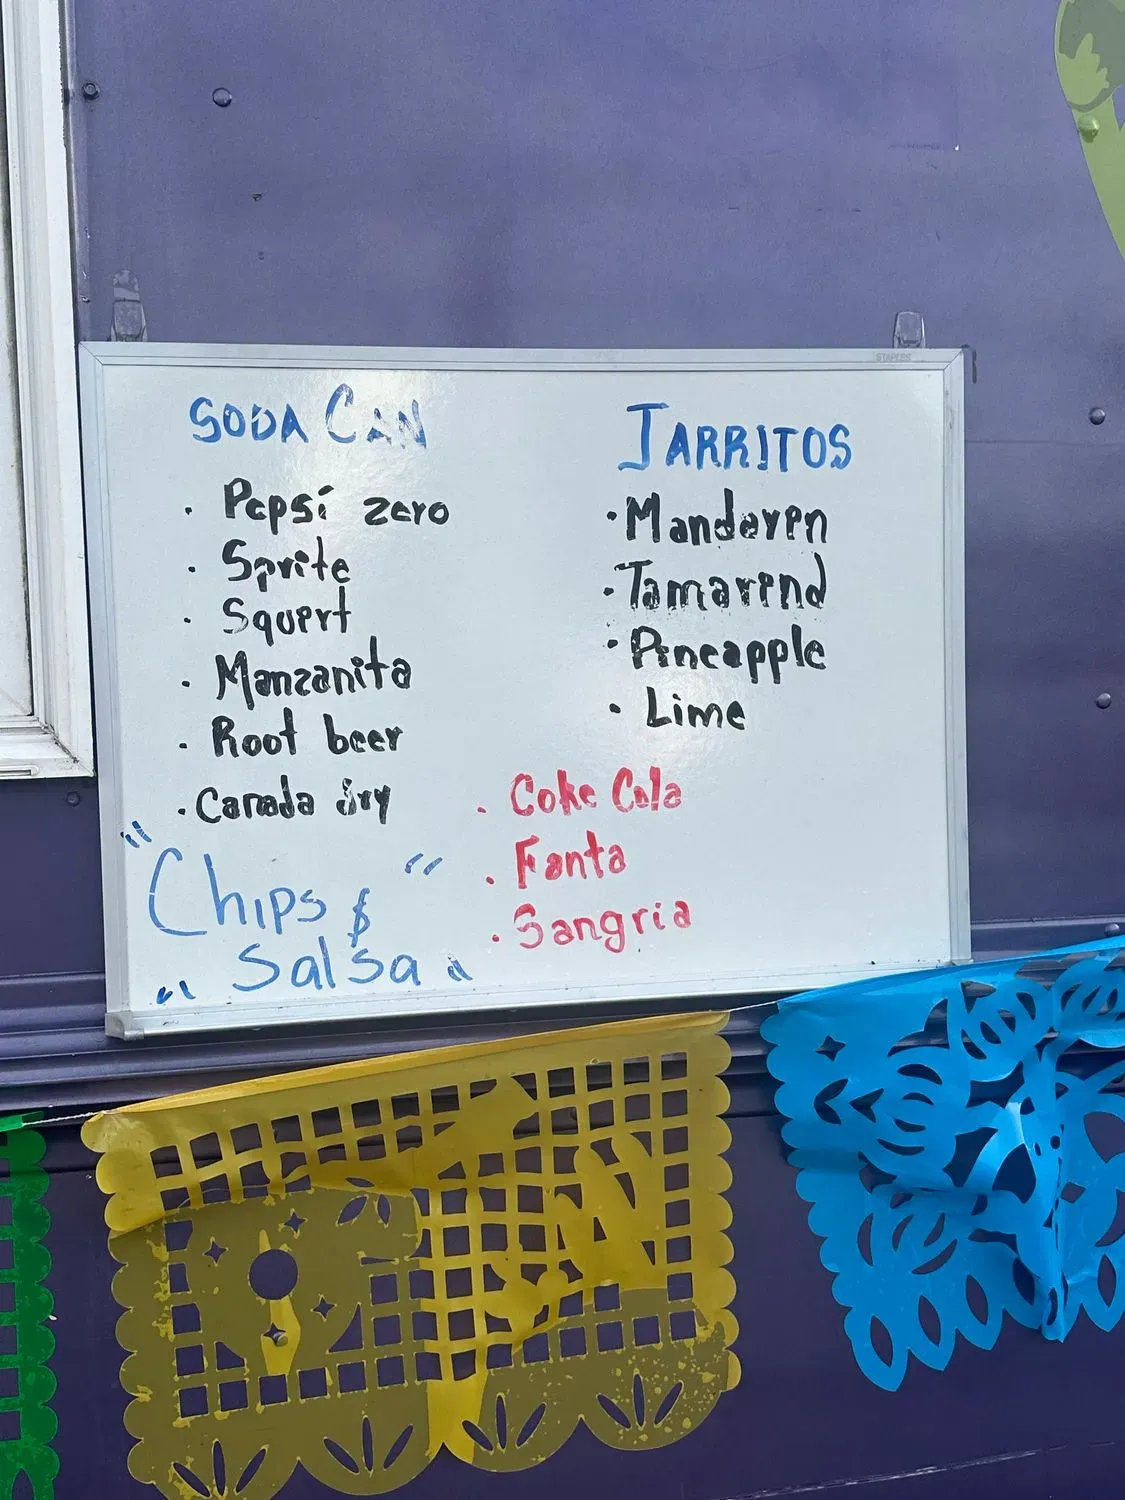 STAPLES
SODA CAN
· Pepsí zero
· Sprite
· Squert
· Manzanita
· Root beer
· Canada dry
"Chips &"
"Salsa"
JARRITOS
· Mandaren
· Tamarend
· Pineapple
· Lime
· Coke Cola
· Fanta
· Sangria